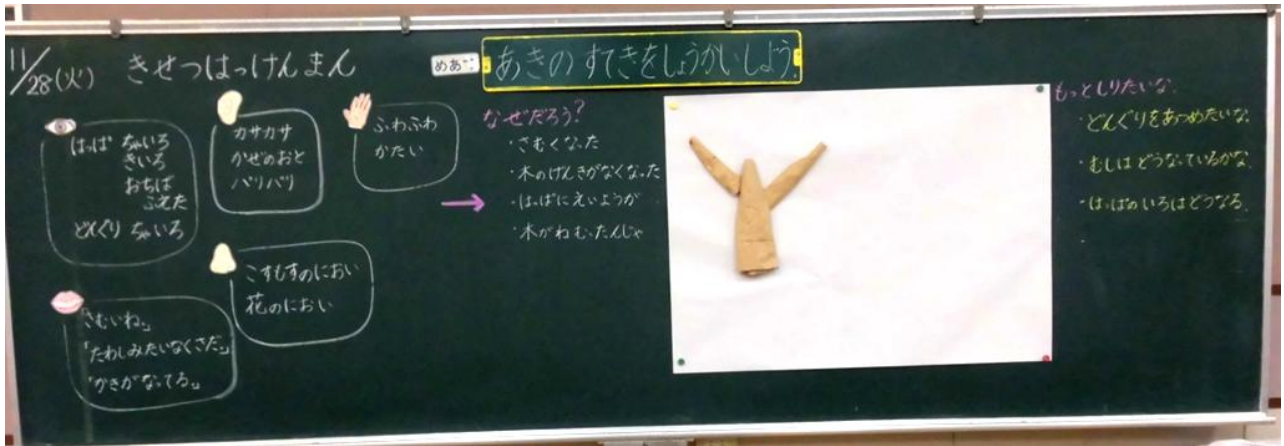 11/28(火) きせつはっけんまん
めあて
あきの すてきをしょうかいしよう。
はっぱ ちゃいろ
きいろ
おちば
ふえた
どんぐり ちゃいろ
カサカサ
かぜのおと
バリバリ
ふわふわ
かたい
こすもすのにおい
花のにおい
「さむいね。」
「たわしみたいなくさだ。」
「かきがなってる。」
なぜだろう?
・さむくなった
・木のげんきがなくなった
・はっぱにえいようが
・木がねむったんじゃ
もっとしりたいな。
・どんぐりをあつめたいな。
・むしはどうなっているかな。
・はっぱのいろはどうなる。